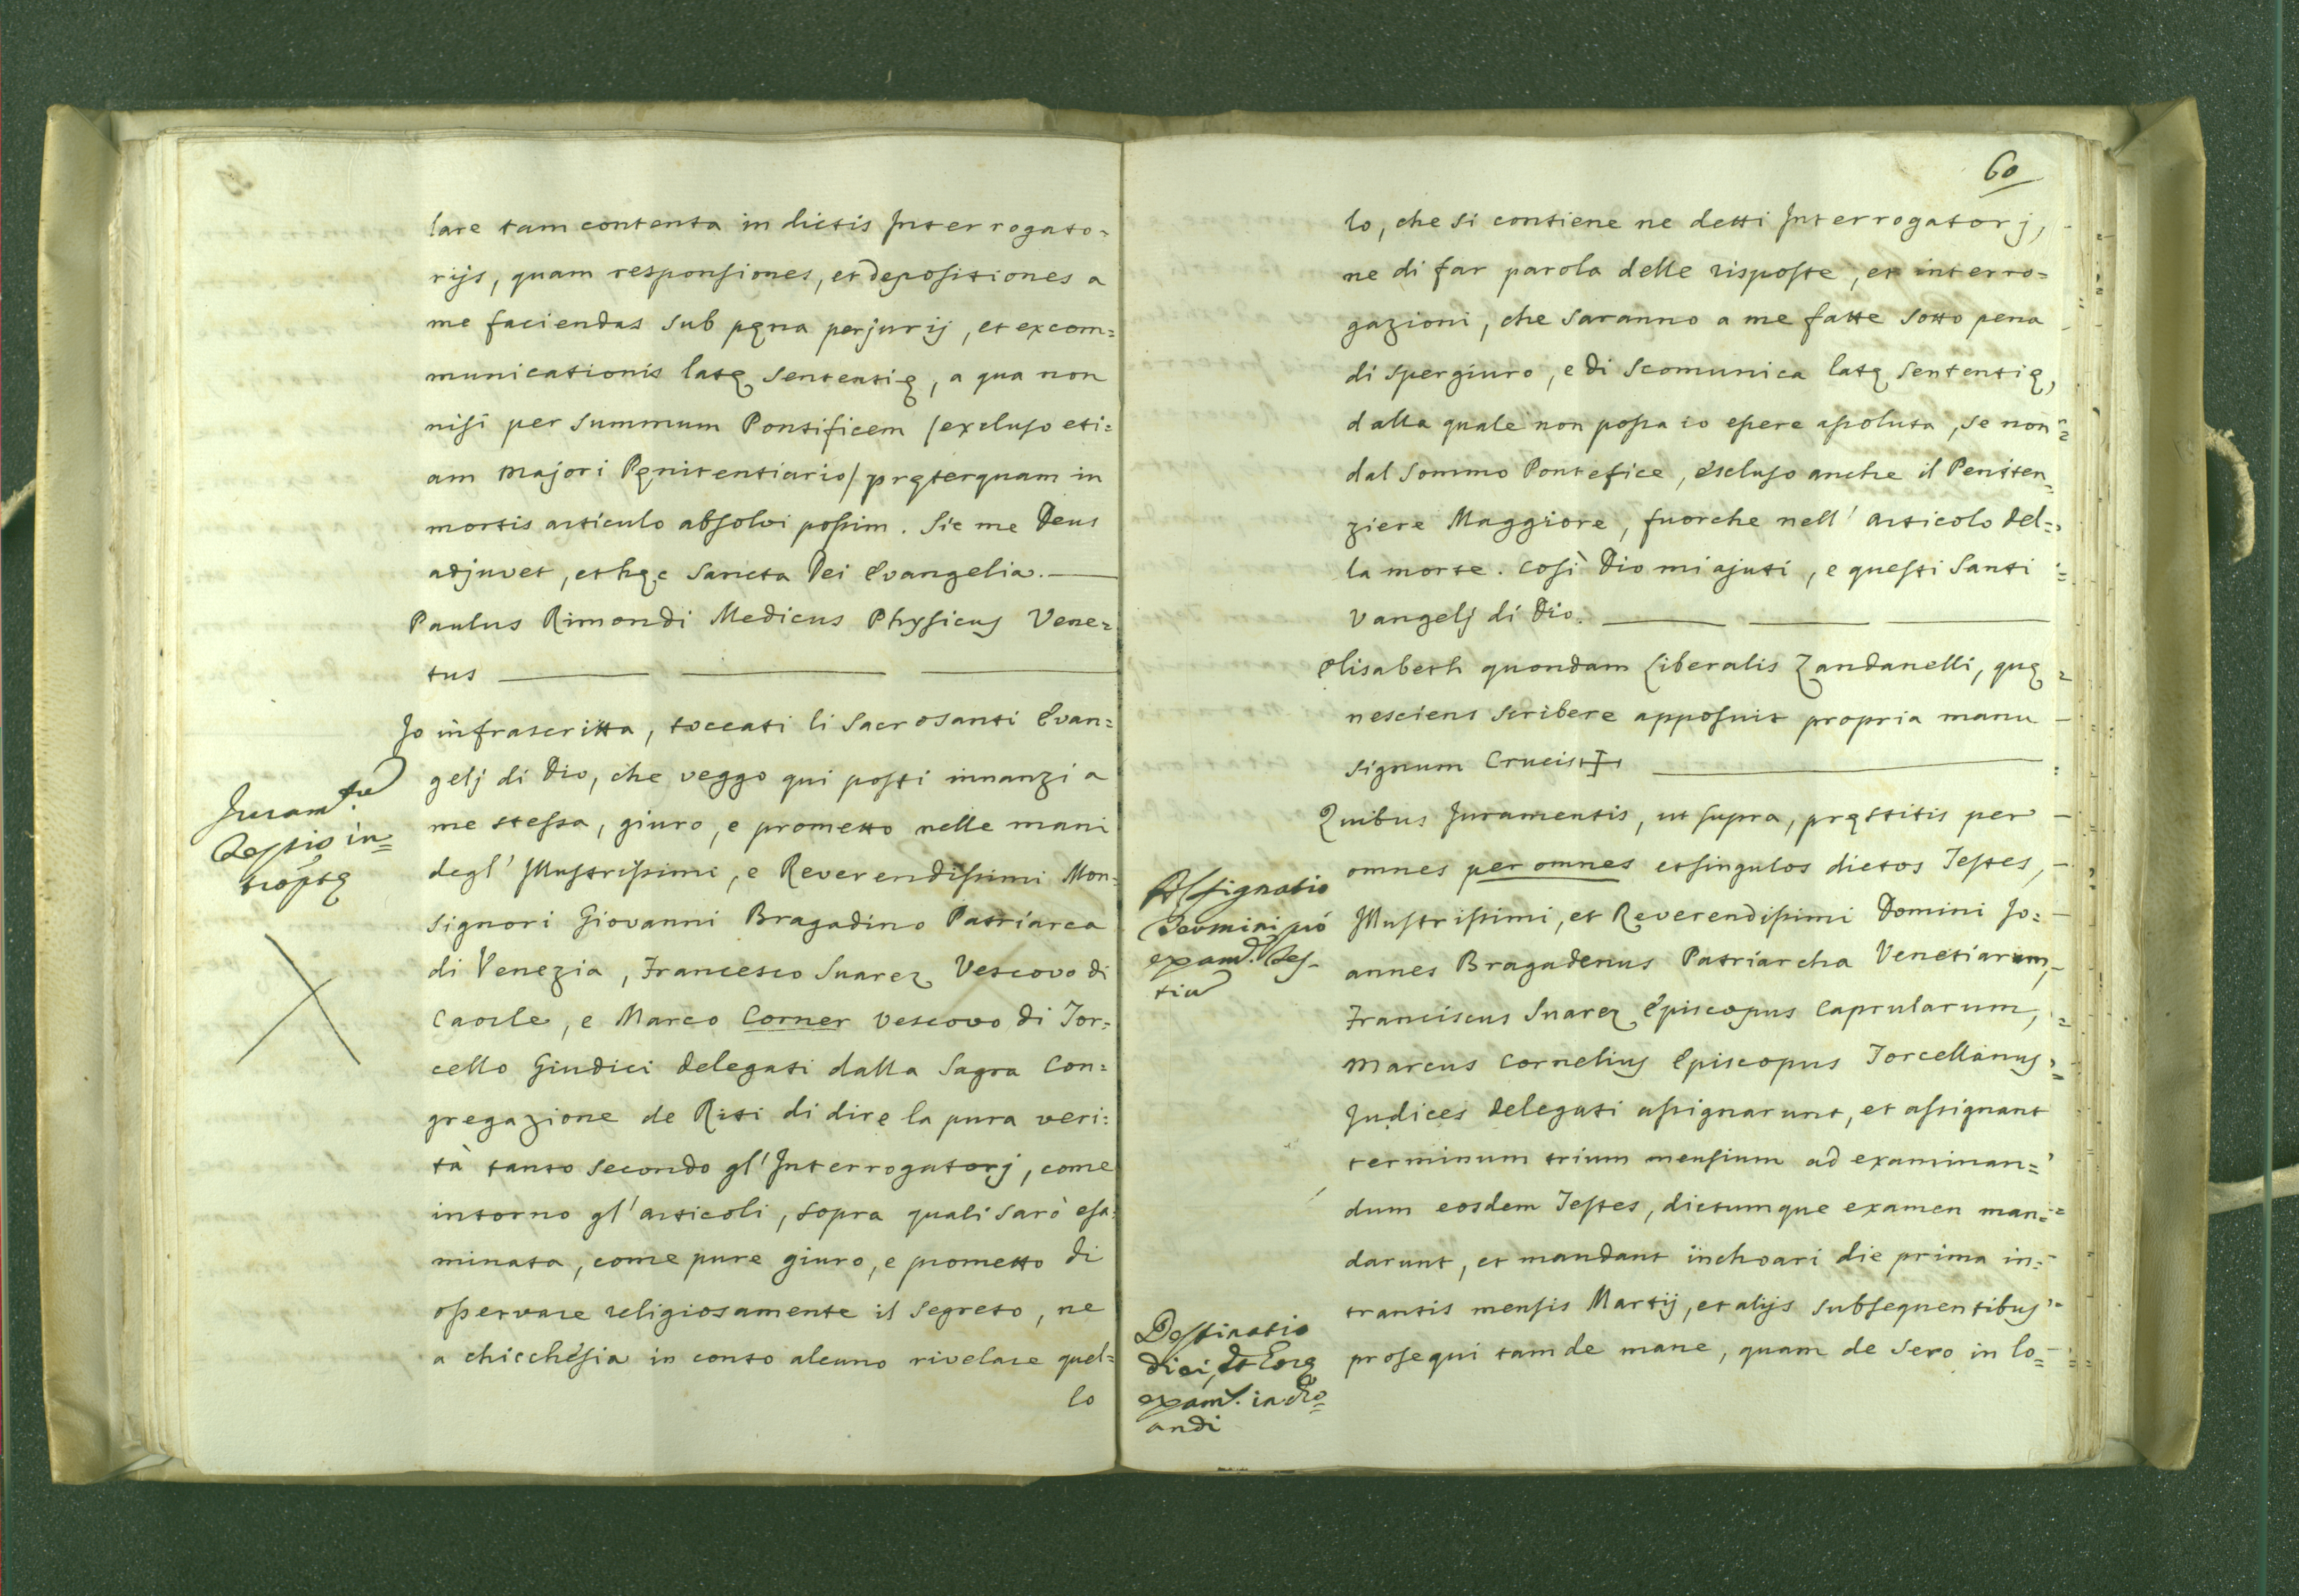 lare tam contenta in dictis Interrogato=
rijs, quam responsiones, et depositiones a
me faciendas sub pęna perjurij, et excom=
municationis latę sententię, a qua non
nisi per summum Pontificem /excluso eti=
am majori Pęnitentiario/ pręterquam in
mortis articulo absolvi possim. Sic me Deus
adjuvet, et hęc Sancta Dei Evangelia.
Paulus Rimondi Medicus Physicus Vene=
tus
Juram.tu
Testis in=
Io infrascritta, toccati li Sacrosanti Evan=
gelj di Dio, che veggo qui posti innanzi a
me stessa, giuro, e prometto nelle mani
degl' Illustrissimi, e Reverendissimi Mon=
signori Giovanni Bragadino Patriarca
di Venezia, Francesco Suarez Vescovo di
Caorle, e Marco Corner Vescovo di Tor=
cello Giudici delegati dalla Sagra Con=
gregazione de Riti di dire la pura veri=
tà tanto secondo gl' Interrogatorj, come
intorno gl' articoli, sopra quali sarò esa=
minata, come pure giuro, e prometto di
osservare religiosamente il segreto, ne
a chicchésia in conto alcuno rivelare quel=
lo
60
lo, che si contiene ne detti Interrogatorj,
ne di far parola delle risposte, et interro=
gazioni, che saranno a me fatte sotto pena
di spergiuro, e di scomunica latę sententię,
dalla quale non possa io essere assoluta, se non
dal Sommo Pontefice, escluso anche il Peniten=
ziere Maggiore, fuorche nell' articolo del=
la morte. Così Dio mi ajuti, e questi Santi
Vangelj di Dio.
Elisabeth quondam Liberalis Zandanelli, quę
nesciens scribere apposuit propria manu
signum Crucis +
Quibus Juramentis, ut supra, pręstitis per
omnes per omnes et singulos dictos Testes,
Illustrissimi, et Reverendissimi Domini Jo=
annes Bragadenus Patriarcha Venetiarum,
Franciscus Suarez Episcopus Caprularum,
Marcus Cornelius Episcopus Torcellanus
Judices delegati assignarunt, et assignant
terminum trium mensium ad examinan=
dum eosdem Testes, dictumque examen man=
darunt, et mandant inchoari die prima in=
trantis mensis Martij, et alijs subsequentibus
prosequi tam de mane, quam de sero in lo=
Assignatio
Termini pró
exam. Tes-
tiu
Destinatio
diei, et horę
exam. incho=
andi